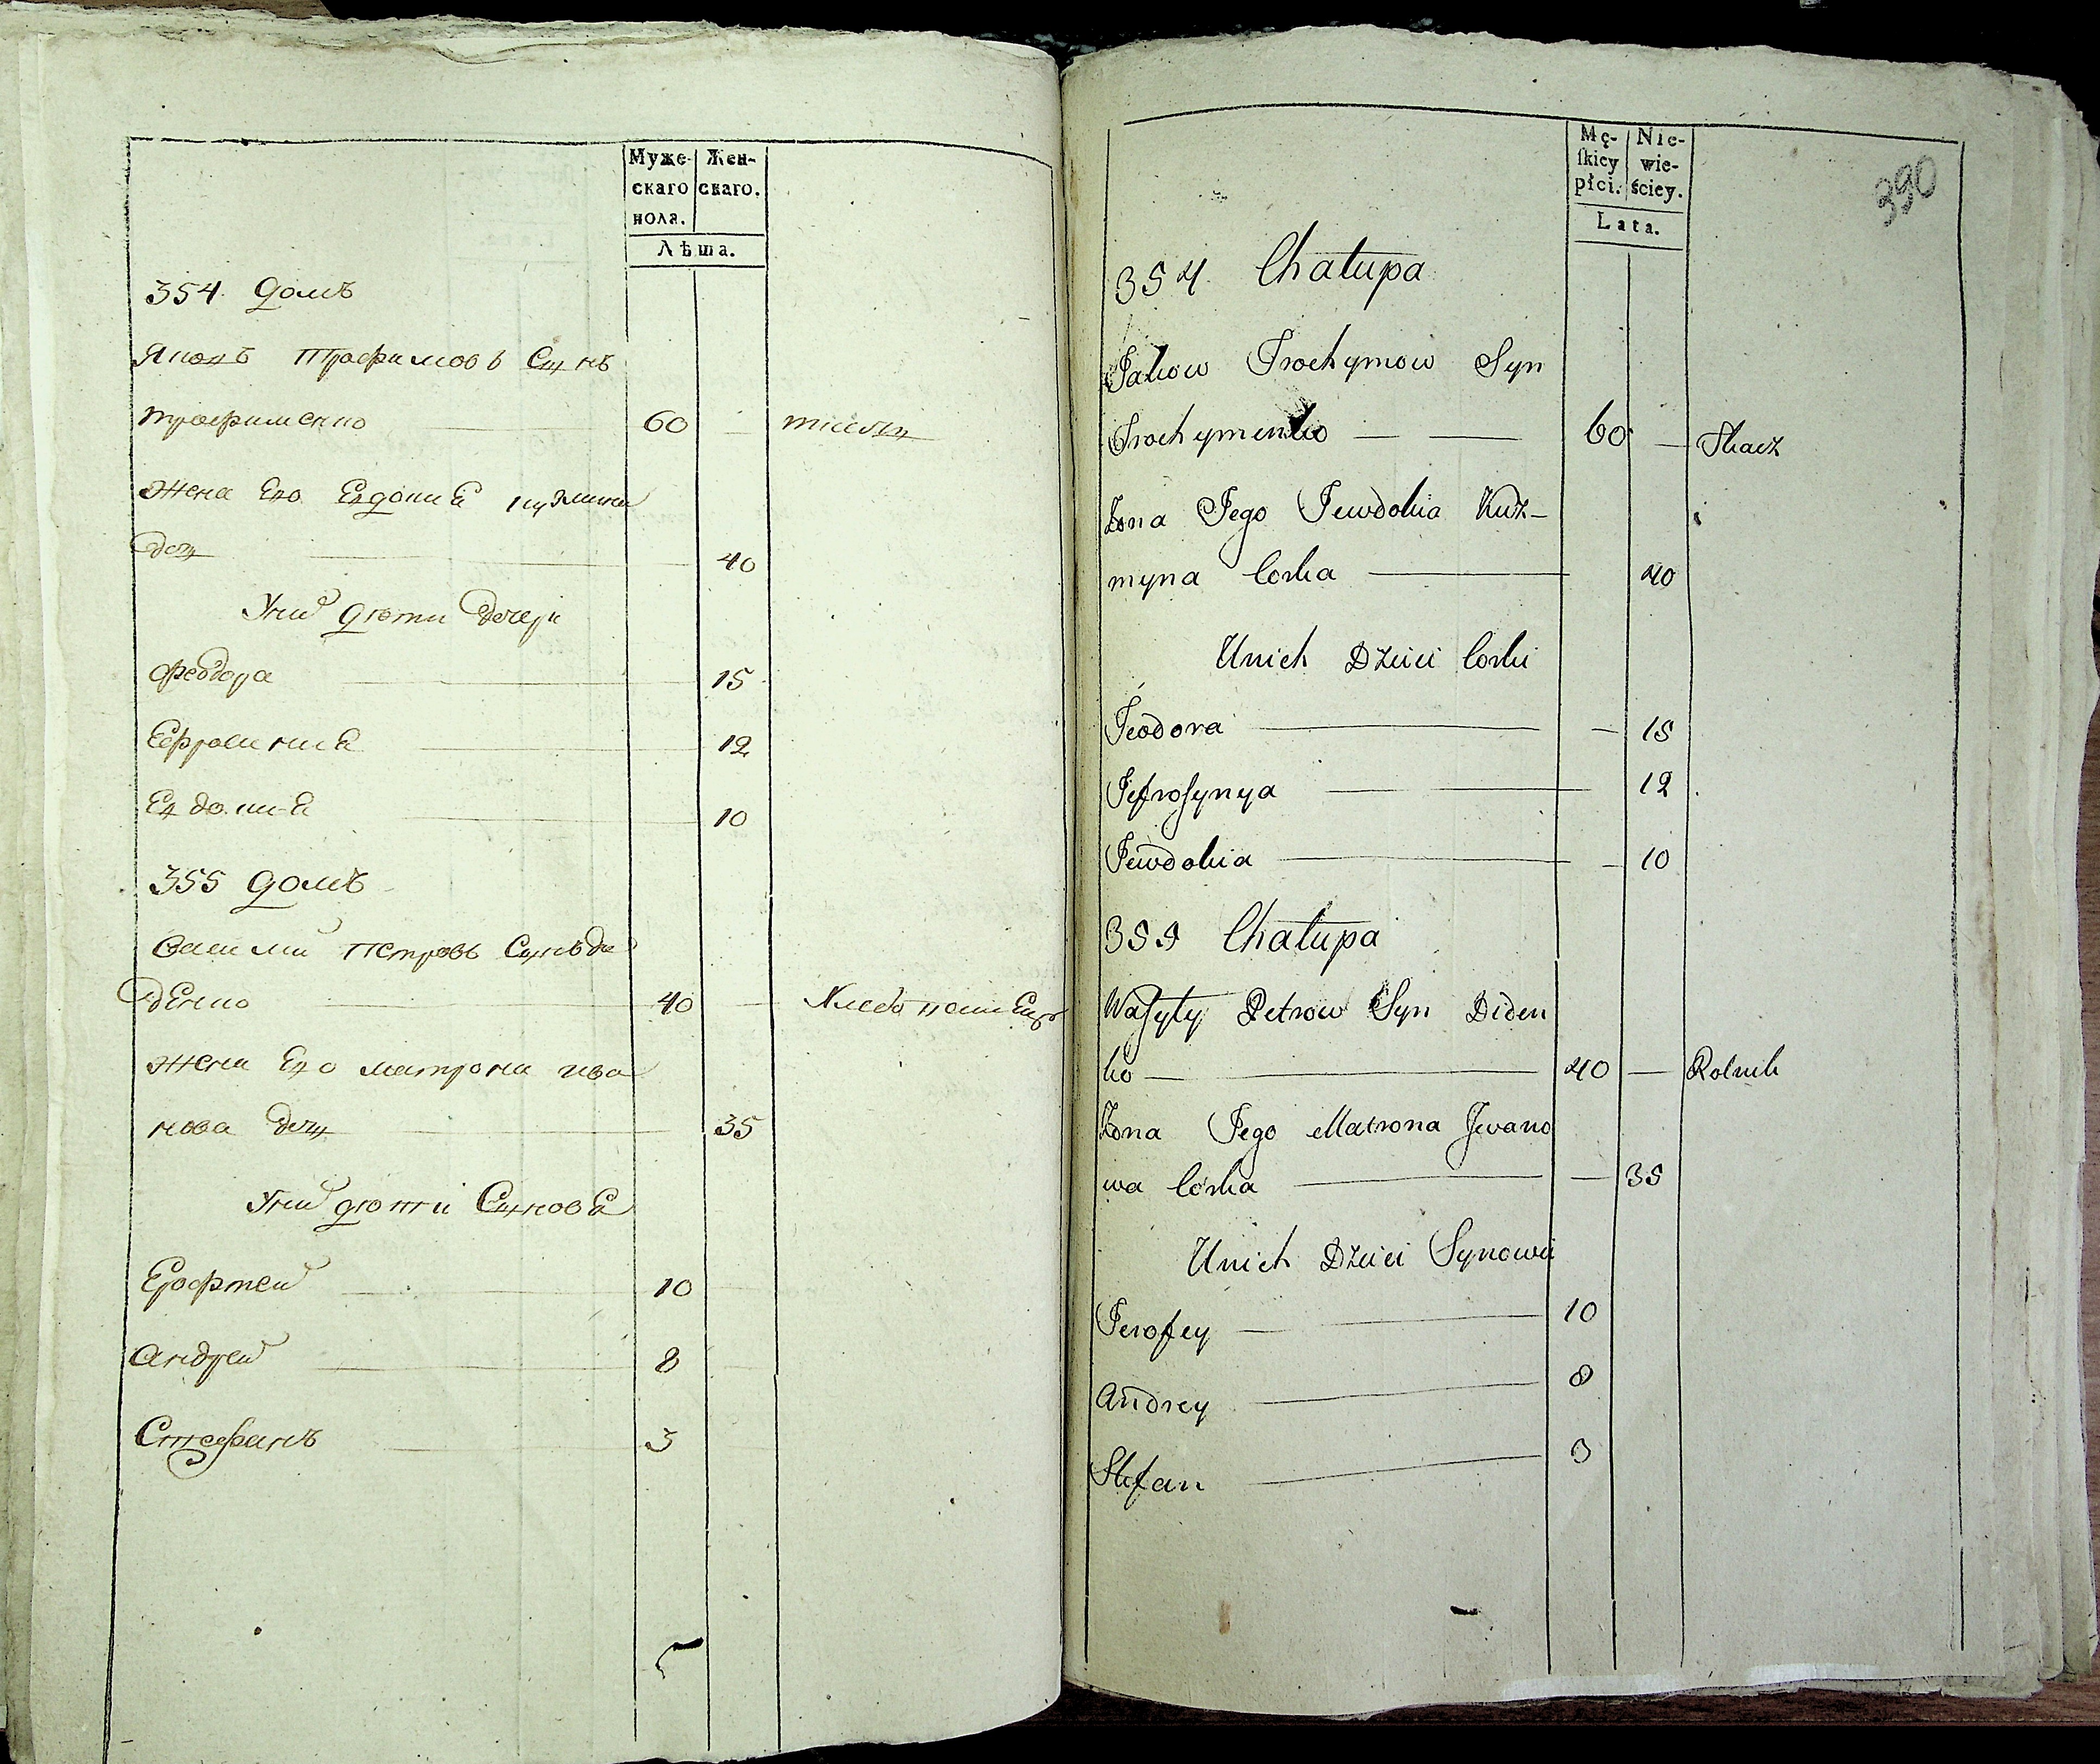 Муже-
скаго
пола.
Жен-
скаго.
Лѣта.
354 домъ
Яковъ Трофимовъ Сынъ
Трофименко 60 ткачь
Жена Его Евдокия кузмина
дочь 40
У них дѣти Дочери
Феодора 15
Ефросиния 12
Евдокия 10
355 домъ
Василий Петровъ Сынъ Ди
денко 40 Хлебопашецъ
Жена Его матрона ива
нова дочь 35
У них дѣти Сыновя
Ерофтей 10
Андрей 8
Стефанъ 3
Mę-
ſkiey
płci.
Nie-
wie-
ściey.
Lata.
390
354 Chałupa
Jakow Trochymow Syn
Trochymenko 60 Tkacz
Żona Jego Jewdokia Kuz-
myna Corka 40
Unich Dzieci Corki
Teodora 15
Jefroſynya 12
Jewdokia 10
355 Chałupa
Waſyly Petrow Syn Diden
ko 40 Rolnik
Żona Jego Matrona Jwano
wa Corka 35
Unich Dzieci Synowie
Jerofey 10
Andrey 8
Stefan 3